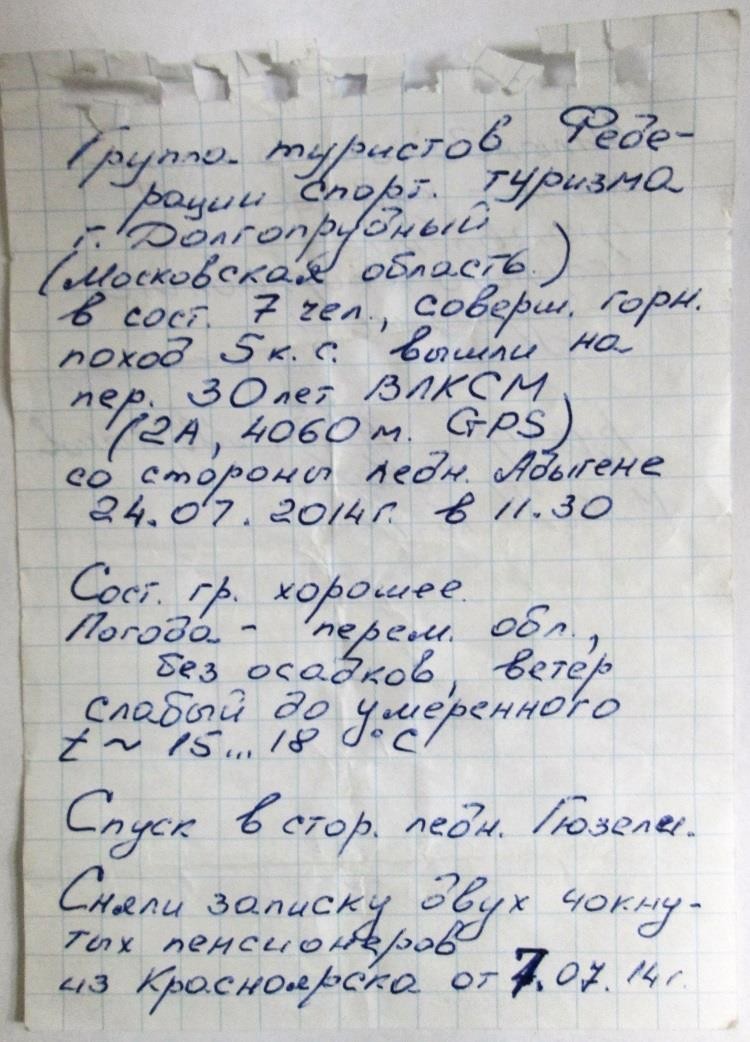 Группа туристов Феде-
рации спорт. туризма
г. Долгопрудный
(Московская область.)
в сост. 7 чел., соверш. горн.
поход 5 к.с. вышли на
пер. 30 лет ВЛКСМ
(2А, 4060 м. GPS)
со стороны ледн. Адыгене
24.07.2014г. в 11.30
Сост. гр. хорошее.
Погода - перем. обл.,
без осадков, ветер
слабый до умеренного
t ~ 15...18 °C
Спуск в стор. ледн. Тюзели.
Сняли записку двух чокну-
тых пенсионеров
из Красноярска от 7.07.14г.